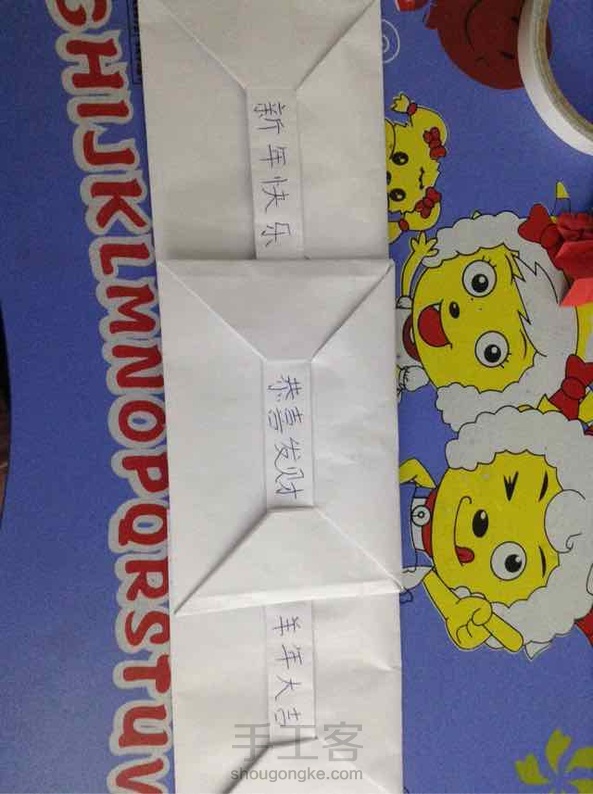 GHIJKLMNOPQRSTUV
新年快乐
恭喜发财
羊年大吉
手工客
shougongke.com